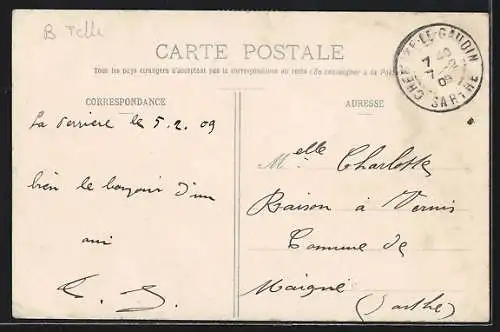 B Telle
CARTE POSTALE
Tous les pays étrangers n'acceptent pas la correspondance au recto (Se renseigner à la Poste
CORRESPONDANCE
ADRESSE
CHEM RE-LE-GAUDIN
7 40
7 -2
09
SARTHE
La verriere le 5.2.09
bien le bonjour d'un
ami
Melle Charlotte
Raison à Vernis
Commune de
Maigné
(Sarthe)